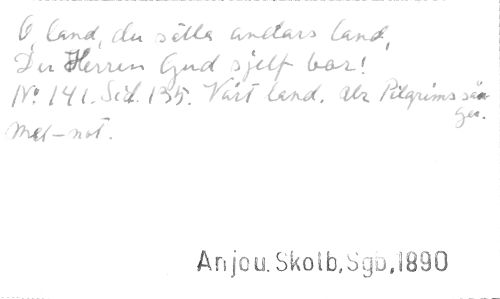 O, land, du sälla andars land,
Der Herren Gud sjelf bor!
No. 141. Sid. 135. Vårt land. Ur Pilgrimssån
ger.
Mel-not.
Anjou, Skolb, Sgb, 1890